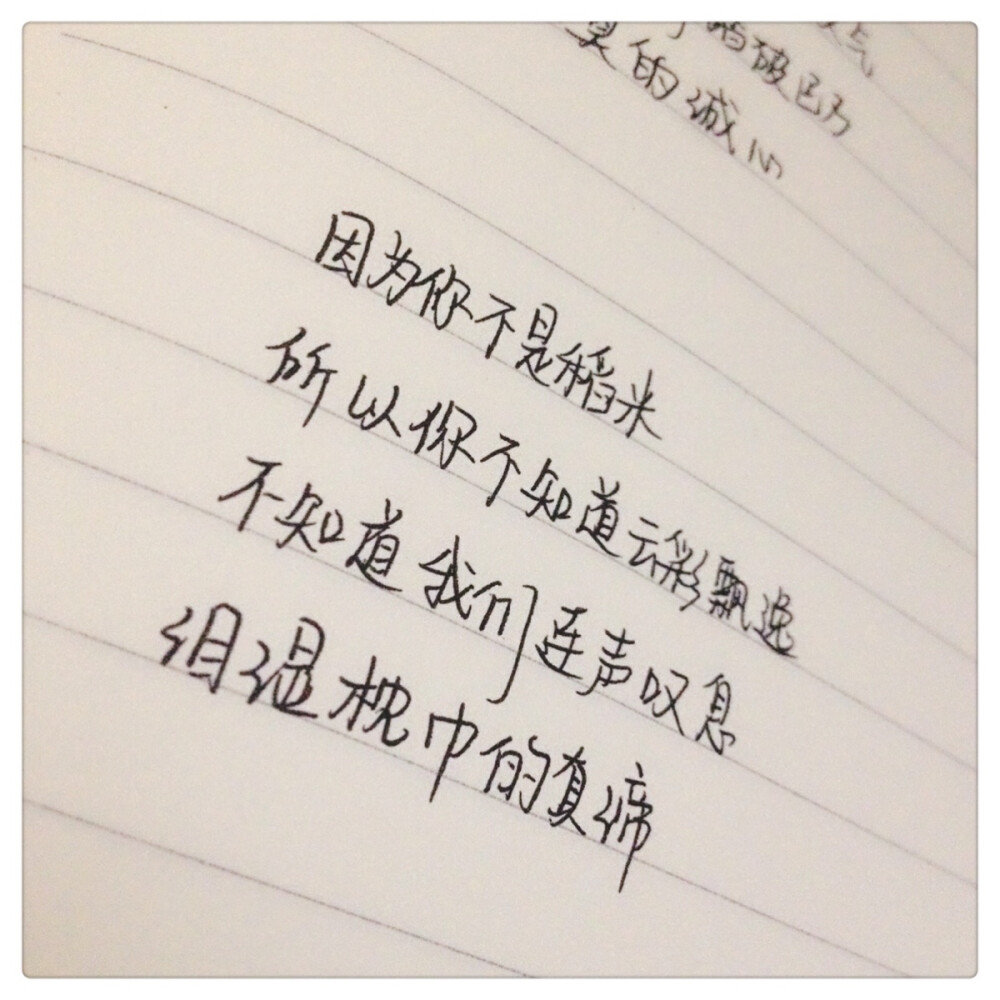 踏破已乃
真的诚心
因为你不是稻米
所以你不知道云彩飘逸
不知道我们连声叹息
泪湿枕巾的真谛